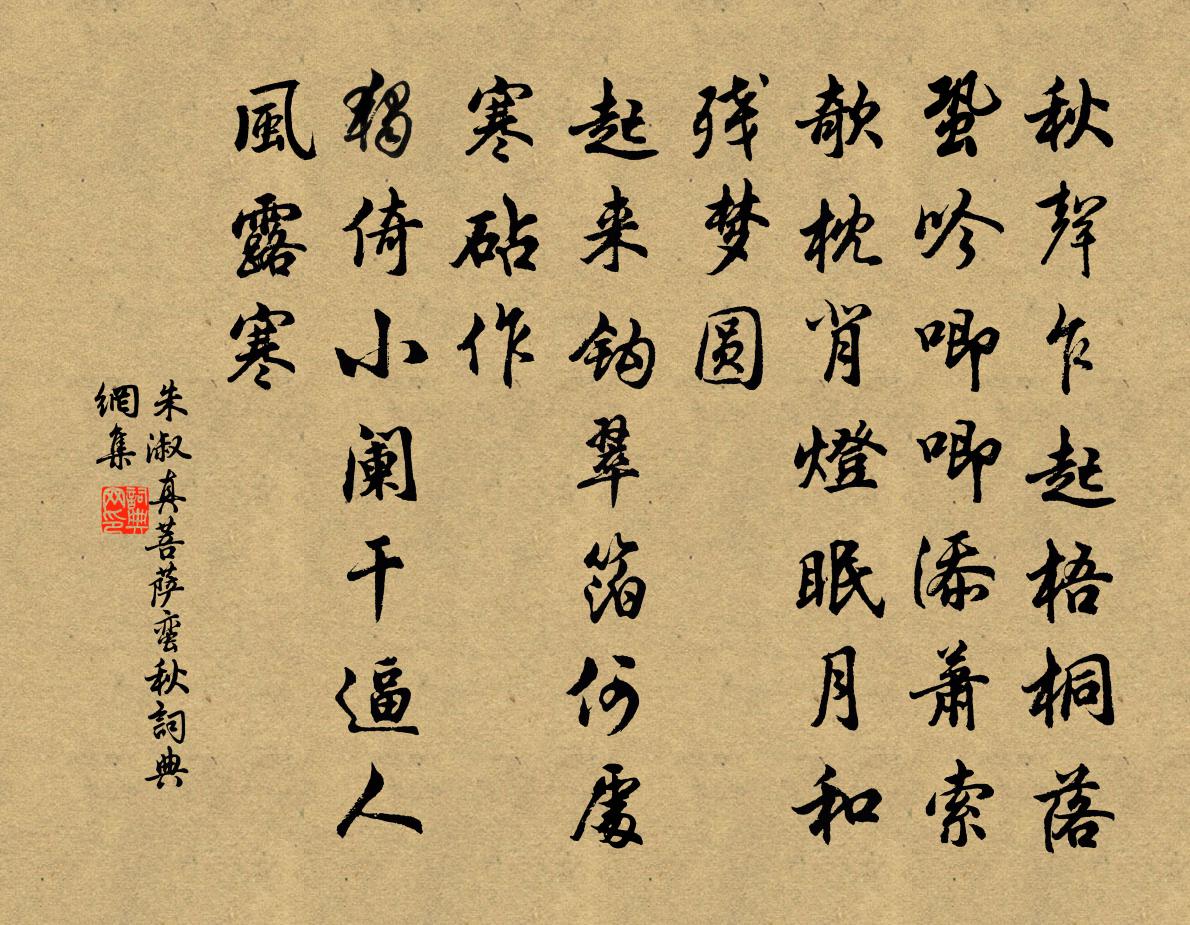 秋聲乍起梧桐落
蛩吟唧唧添蕭索
欹枕背燈眠月和
残梦圆
起来鈎翠箔何處
寒砧作
獨倚小阑干逼人
風露寒
朱淑真菩萨蛮秋詞典
網集
詞典网印